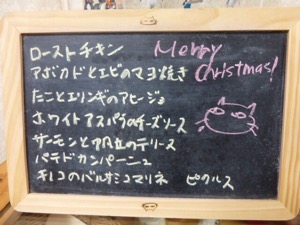 ローストチキン
Merry Christmas!
アボカドとエビのマヨ焼き
たことエリンギのアヒージョ
ホワイトアスパラのチーズソース
サーモンと帆立のテリーヌ
パテドカンパーニュ
キノコのバルサミコマリネ ピクルス